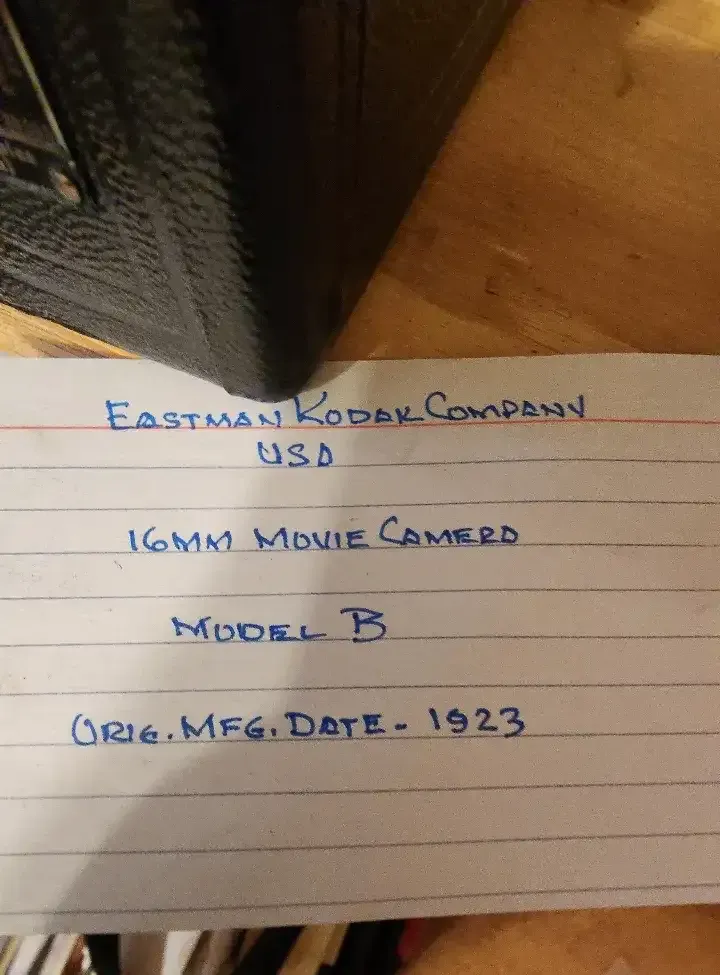 EASTMAN KODAK COMPANY
USA
16MM MOVIE CAMERA
MODEL B
ORIG. MFG. DATE - 1923